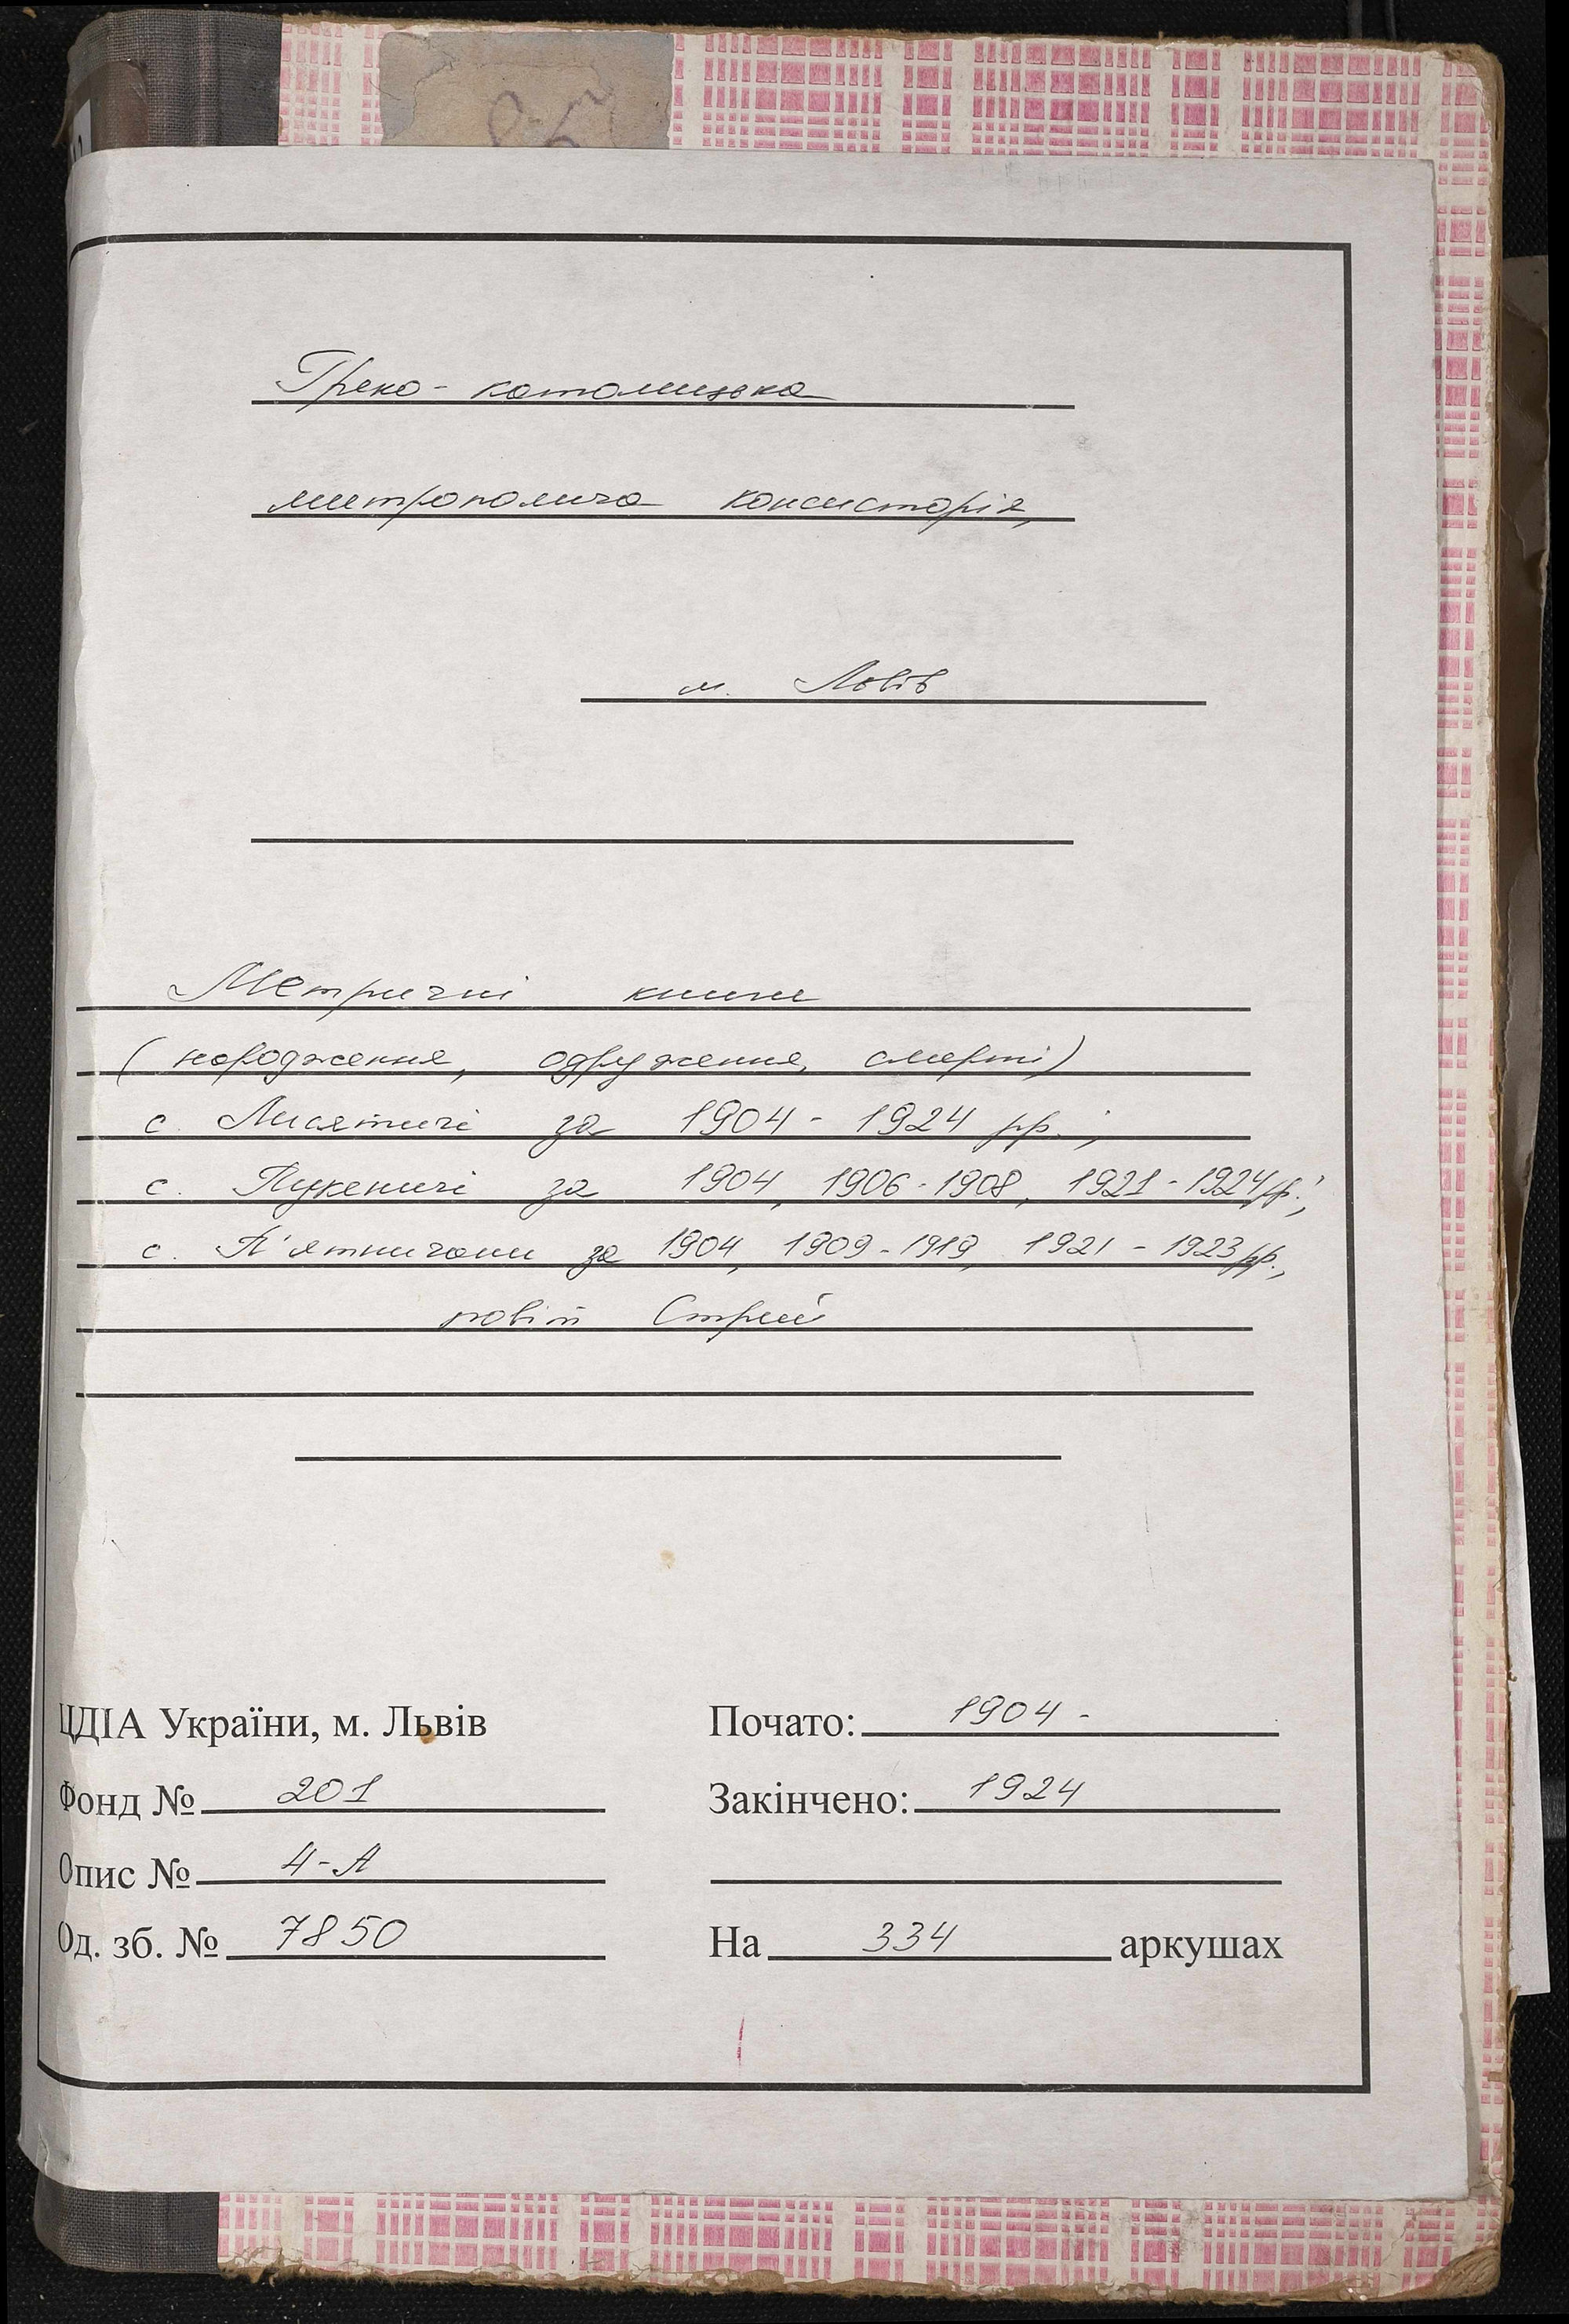 Греко-католицька
митрополича консисторія,
м. Львів
Метричні книги
( народження, одруження, смерті)
с. Лисятичі за 1904 - 1924 рр.;
с. Лукавичі за 1904, 1906-1908, 1921-1924рр.;
с. П'ятничани за 1904, 1909-1919, 1921 - 1923 рр.,
повіт Стрий
ЦДІА України, м. Львів
Почато: 1904 -
Фонд № 201
Закінчено: 1924
Опис № 4-А
Од. зб. № 7850
На 334 аркушах